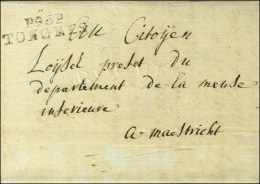 P93P
TONGRES
Au Citoyen
Loÿsel prefet du
departement de la meuse
inferieure
a maestricht